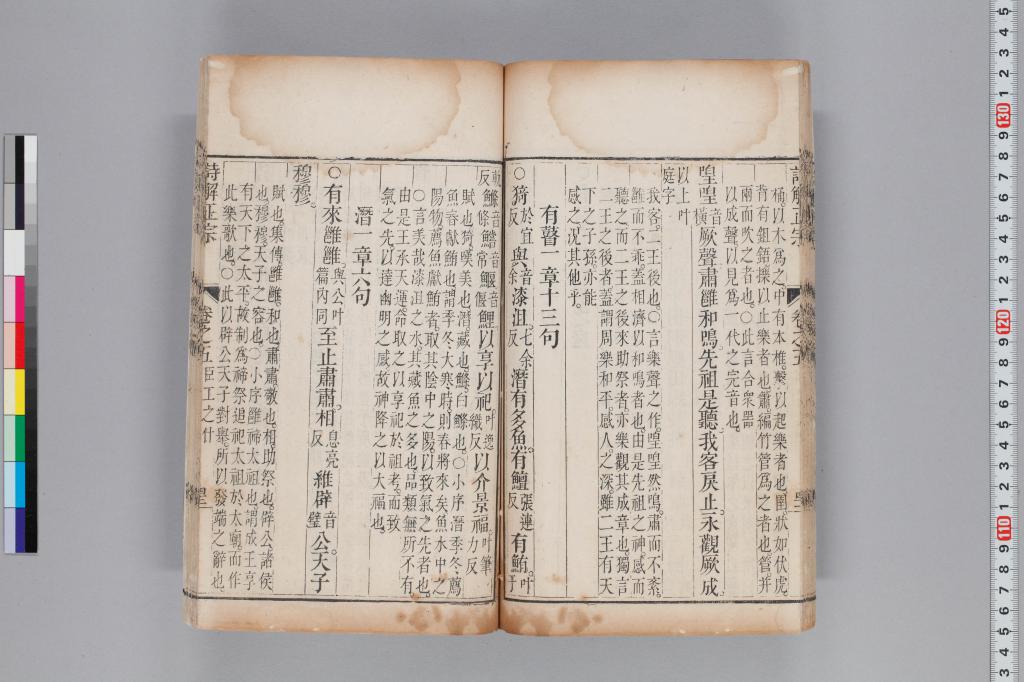 桶以木爲之中有本椎𣪠以起樂者也圉狀如伏虎
背有鉏鋙擽以止樂者也簫編竹管爲之者也管并
兩而吹之者也○此言合衆器
以成聲以見爲一代之完音也
喤喤音橫厥聲肅雝和鳴先祖是聽我客戾止永觀厥成
以上叶庭字
我客二王後也○言樂聲之作喤喤然鳴肅而不紊
雝而不乖蓋相濟以和鳴者也由是先祖之神感而
聽之而二王之後來助祭者亦樂觀其成章也獨言
二王之後者蓋謂周樂和平感人之深雖二王有天
下之子孫亦能
感之況其他乎
有瞽一章十三句
○猗於宜反與音余漆沮七余反潛有多魚有鱣張連反有鮪叶于
軌反鰷音條鱨音常鰋音偃鯉以享以祀叶逸織反以介景福叶筆力反
賦也猗嘆美也潛藏也鰷白鰷也○小序潛季冬薦
魚春獻鮪也謂季冬大寒時則春將來矣魚水中之
陽物薦魚獻鮪者取其陰中之陽以致氣之先者也
○言美哉漆沮之水其藏魚之多也品類無所不有
由是王承天運命取之以享祀於祖考而致
氣之先以達幽明之感故神降之以大福也
潛一章六句
○有來雝雝與公叶篇內同至止肅肅相息亮反維辟音璧公天子
穆穆
賦也集傳雝雝和也肅肅敬也相助祭也辟公諸侯
也穆穆天子之容也○小序雝禘太祖也謂成王享
有天下之太平故制爲禘祭追祀太祖於太廟而作
此樂歌也○此以辟公天子對舉所以發端之辭也
詩解正宗 卷之五 臣工之什